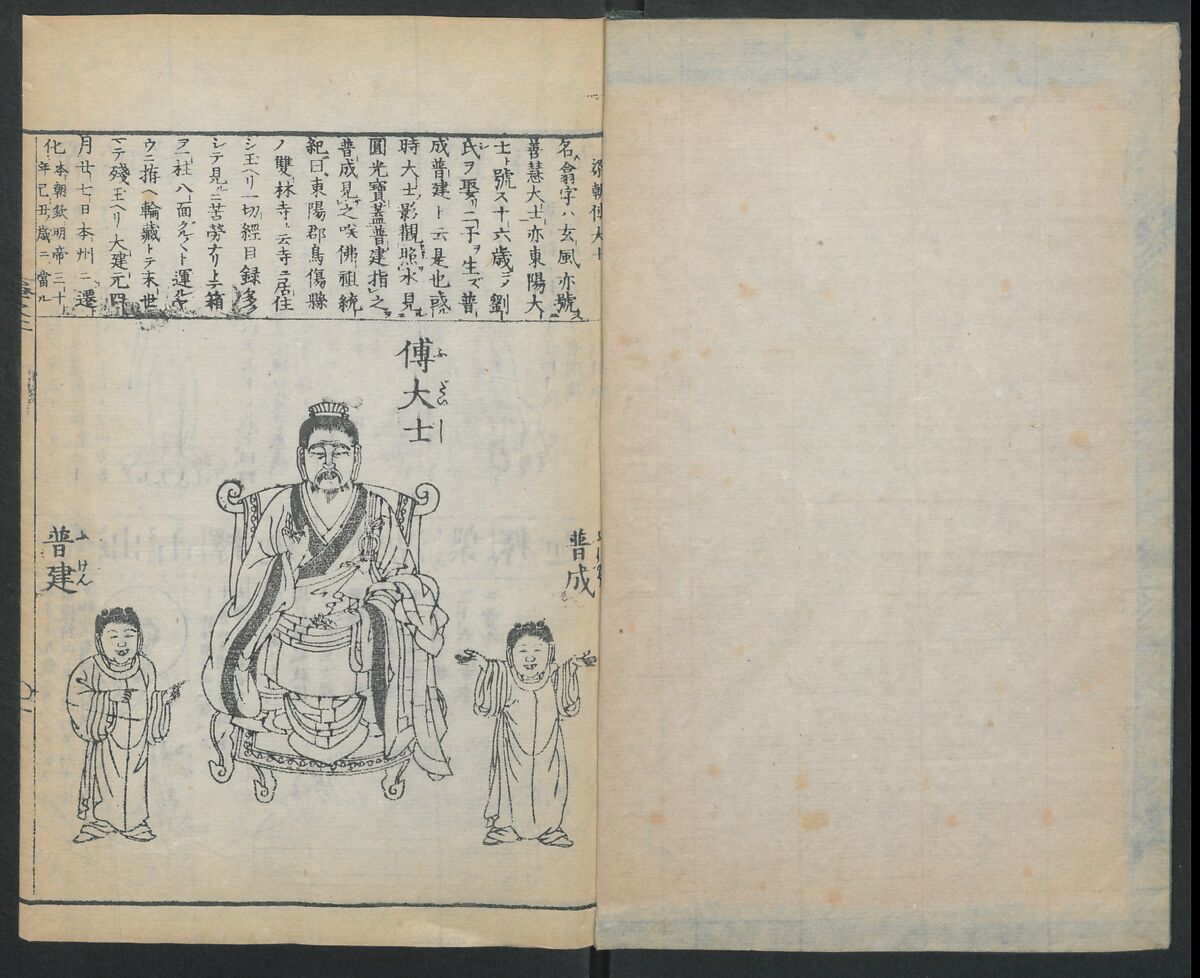 梁朝傅大士
名ハ翕字ハ玄風亦號ス
善慧大士亦東陽大
士ト號ス十六歳ニノ劉
氏ヲ娶リ二子ヲ生ズ普
成普建ト云是也或
時大士影觀照水見
圓光寶蓋普建指之
普成見之咲佛祖統
紀曰東陽郡烏傷縣
ノ雙林寺ト云寺ニ居住
シ玉ヘリ一切經目録多ク
シテ見ニ苦勞ナリトテ箱
ヲ一柱八面クル〱ト運ルヤ
ウニ拵ヘ輪藏トテ末世
マテ殘玉ヘリ大建元四
月廿七日本州ニ遷
化 本朝欽明帝三十
年己丑歳ニ當ル
傅大士
ふだいし
普成
普建
ふけん